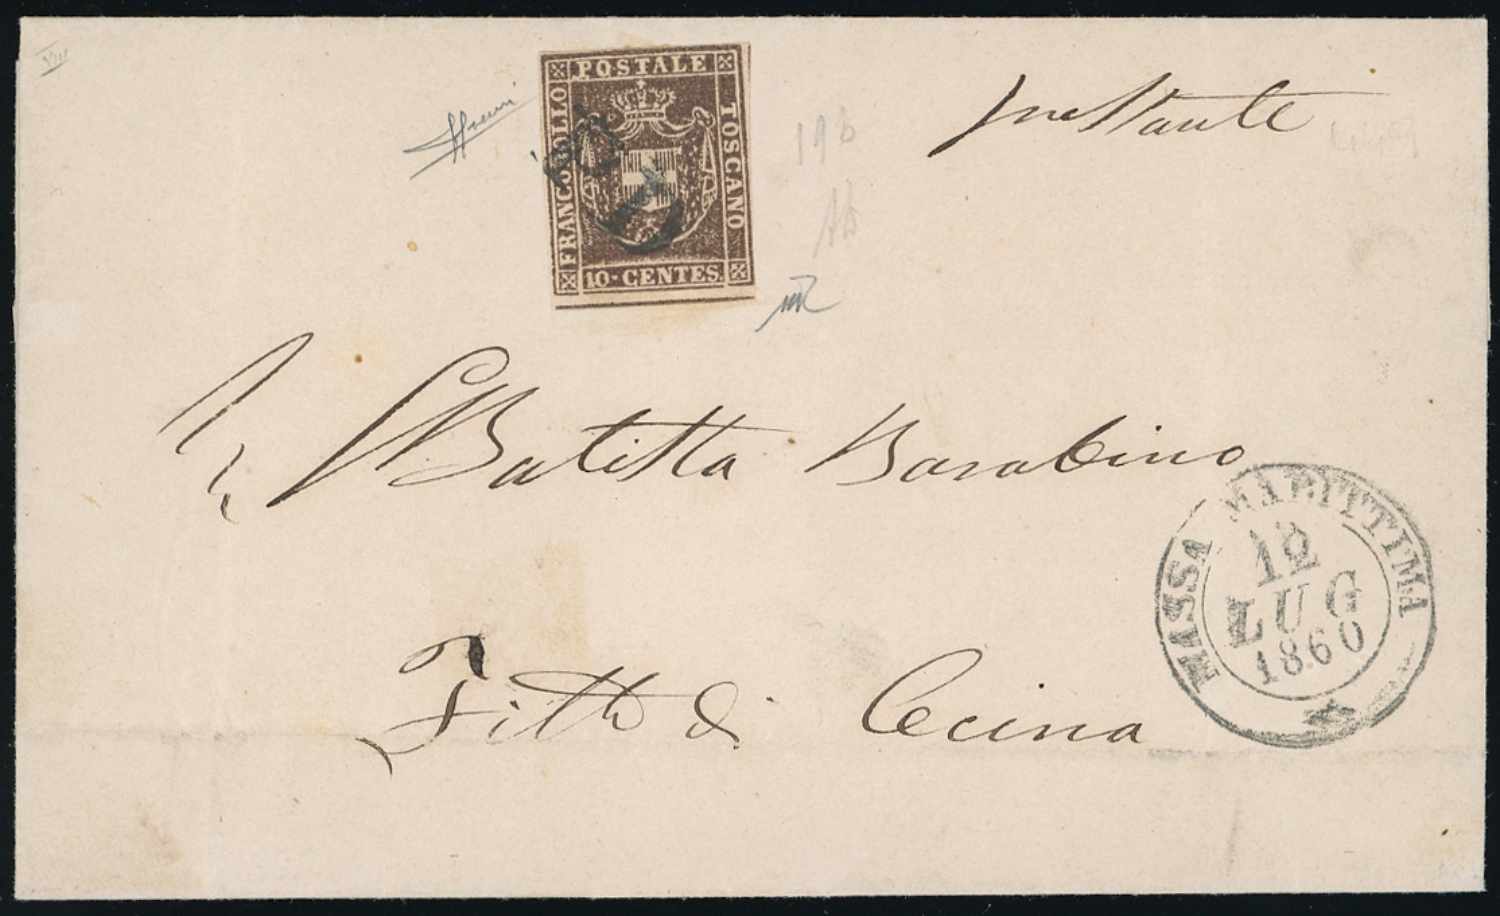 FRANCOBOLLO POSTALE TOSCANO
10 CENTES.
PD
19b
AD
Batista Barabino
Fitto di Cecina
MASSA MARITTIMA
12
LUG
1860